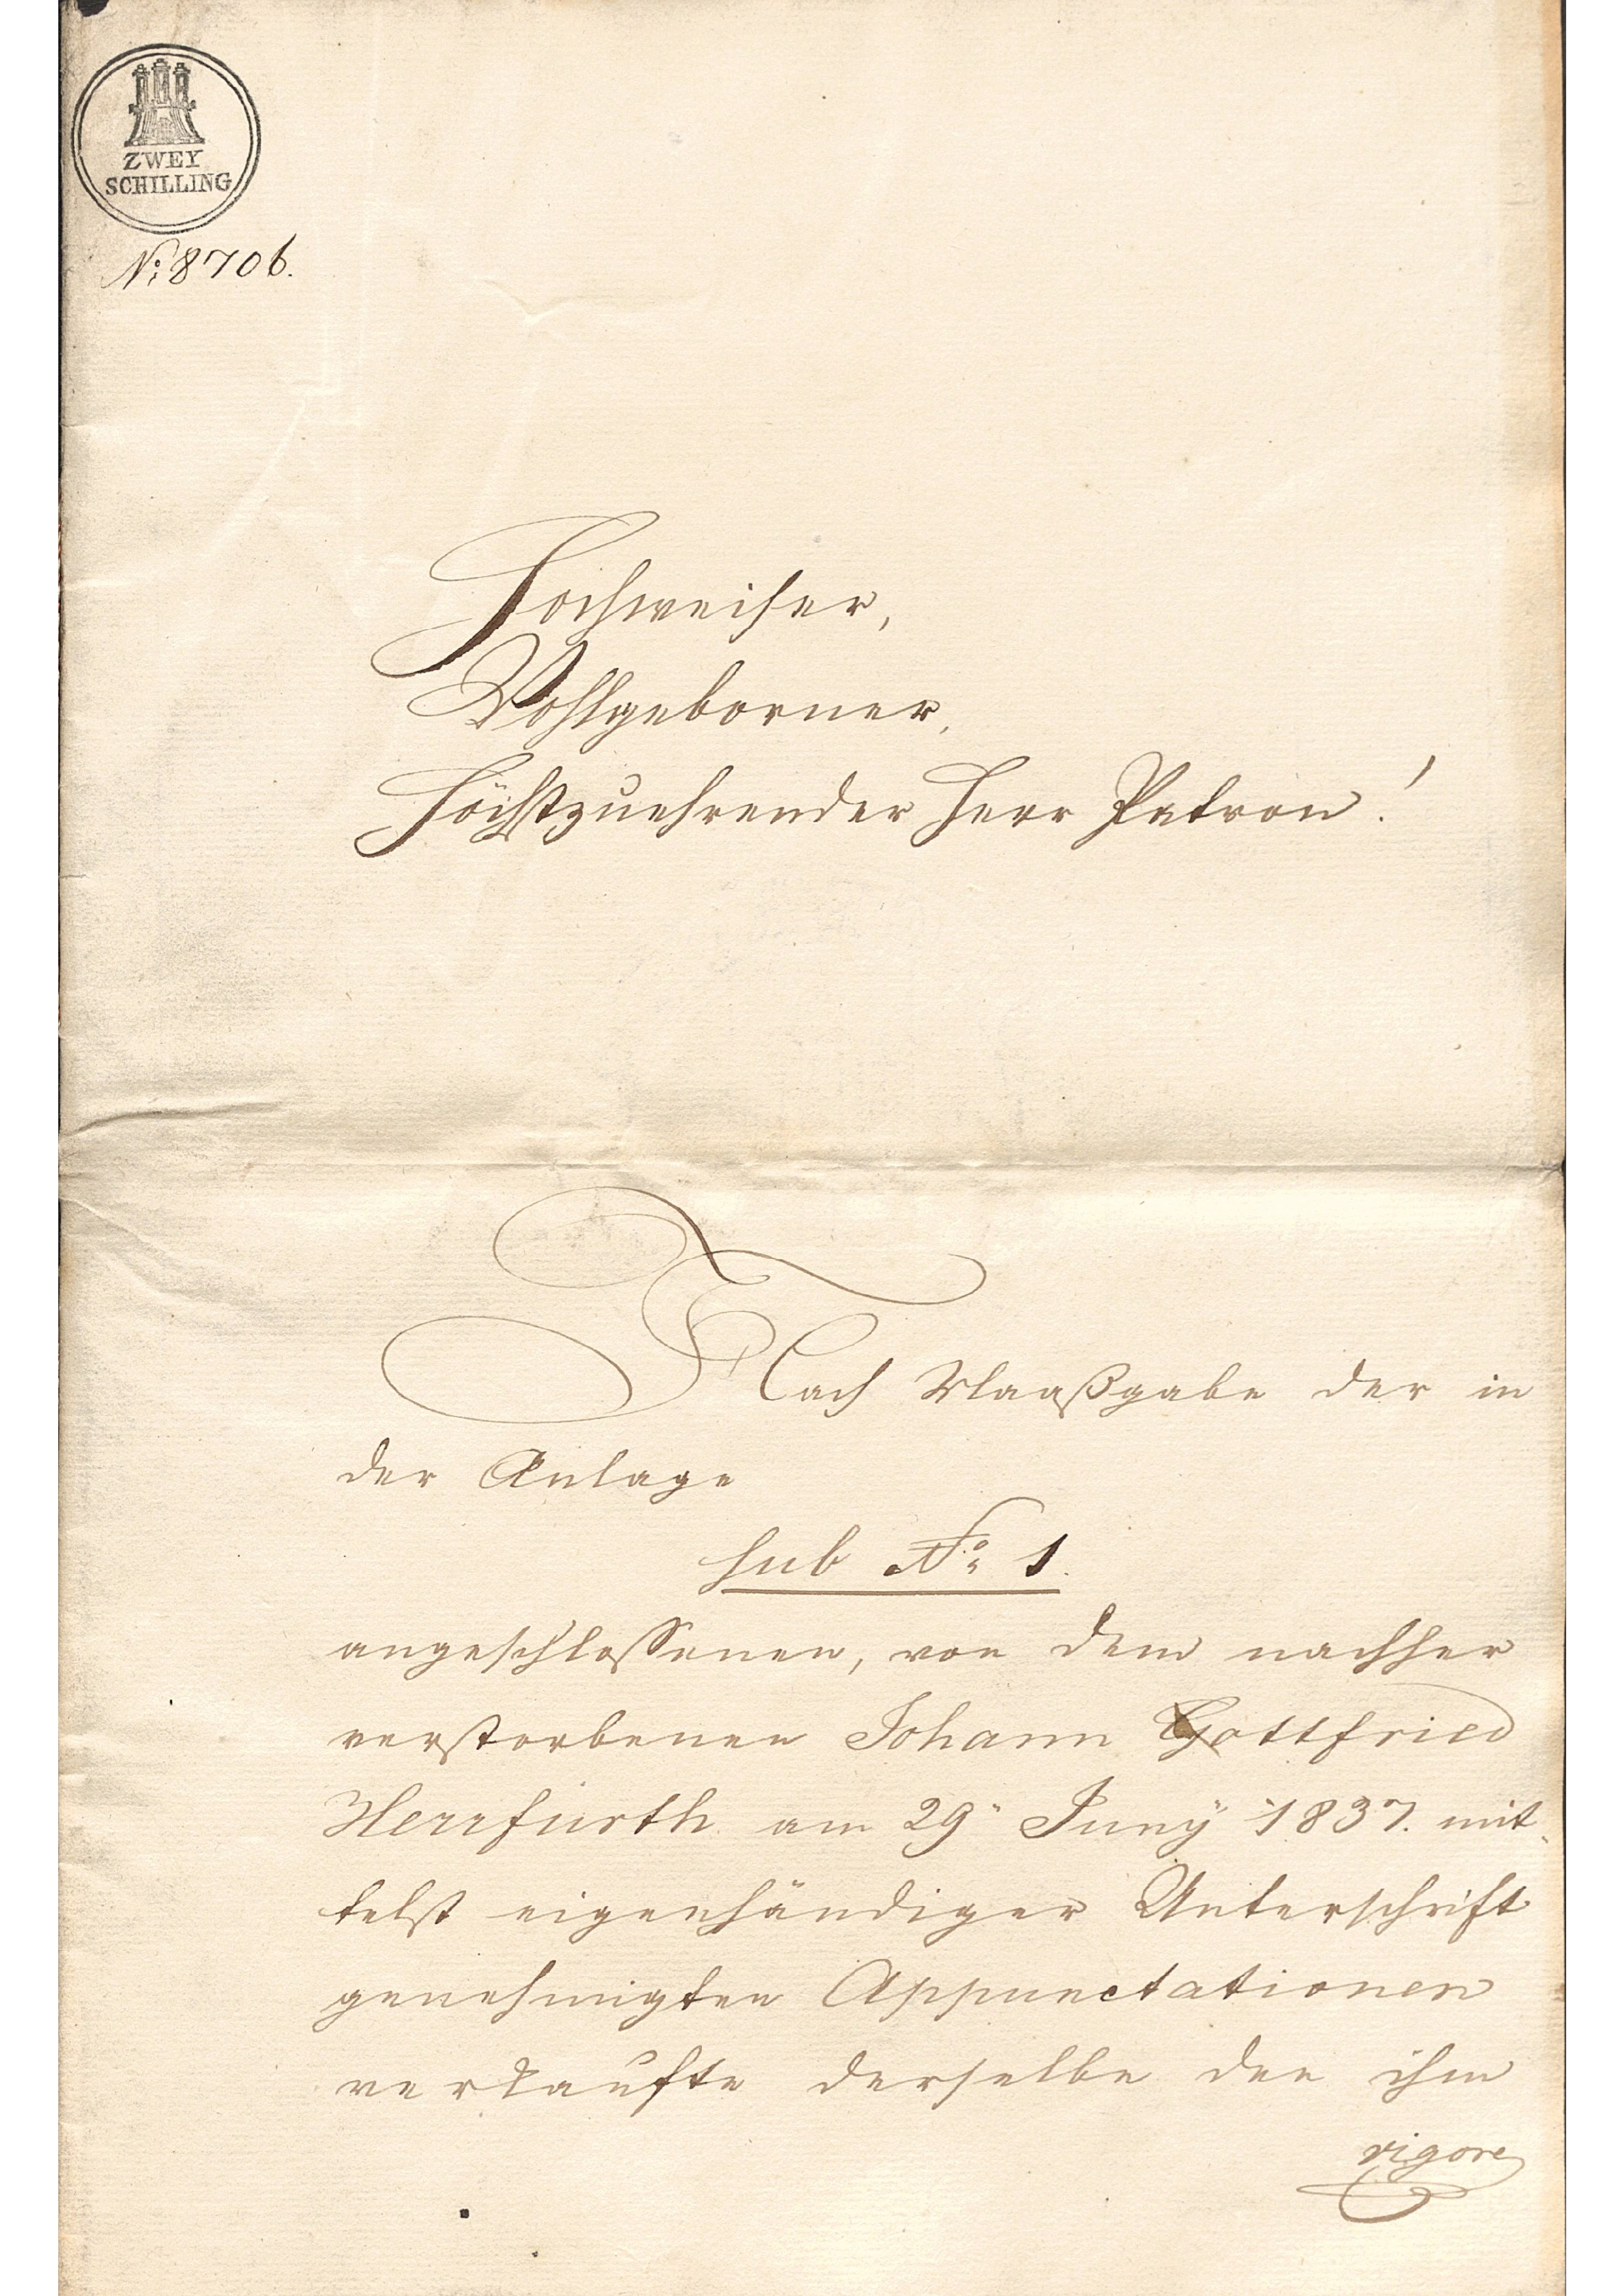 ZWEY
SCHILLING
No: 8706.
Hochweiser,
Wohlgeborner,
Höchstzuehrender Herr Patron!
Nach Maaßgabe der in
der Anlage
sub No. 1.
angeschlossenen, von dem nachher
verstorbenen Johann Gottfried
Herrfurth am 29. Juny 1837. mit-
telst eigenhändiger Unterschrift
genehmigten Appunctationen
verkaufte derselbe den ihm
vigore